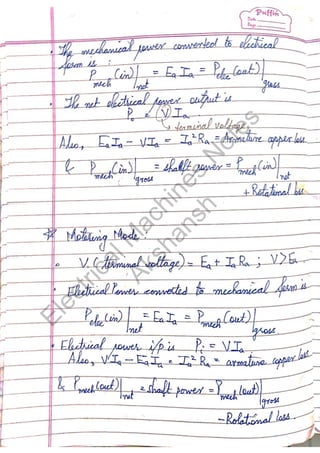 Puffin
Date
Page
• The mechanical power converted to electrical
form is :
P mech (in)|net = EaIa = P elec (out)|gross
• The net electrical power output is
Po = V Ia
→ terminal voltage.
Also, EaIa - VIa = Ia²Ra = Armature copper loss
& P mech (in)|gross = shaft power = P mech (in)|net
+ Rotational loss
Motoring Mode :
• V (terminal voltage) = Ea + IaRa ; V > Ea
• Electrical Power converted to mechanical form is
P elec (in)|net = EaIa = P mech (out)|gross
• Electrical power i/p is Pi = VIa
Also, VIa - EaIa = Ia²Ra = armature copper loss
& P mech (out)|net = shaft power = P mech (out)|gross
- Rotational loss.
Electrical Machines Notes
Akshansh